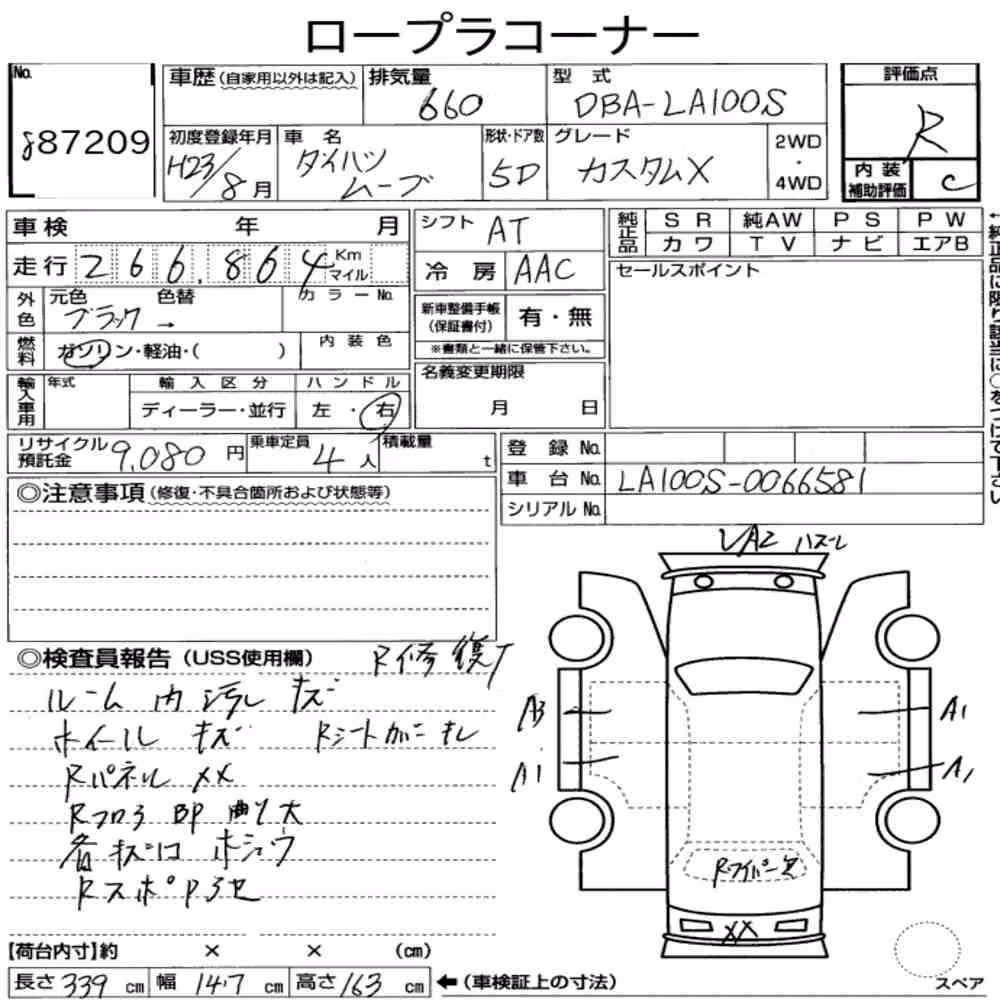 ロープラコーナー
No.
87209
車歴(自家用以外は記入) 排気量 660
型式 DBA-LA100S
評価点 R
初度登録年月 H23/8月
車名 ダイハツ ムーブ
形状・ドア数 5D
グレード カスタムX
2WD・4WD
内装補助評価 C
車検 年 月
シフト AT
純正品 SR 純AW PS PW
カワ TV ナビ エアB
走行 266,864 Km マイル
冷房 AAC
セールスポイント
外色 元色 ブラック → 色替 カラーNo.
新車整備手帳(保証書付) 有・無
※書類と一緒に保管下さい。
燃料 ガソリン・軽油・( ) 内装色
名義変更期限 月 日
輸入車用 年式 輸入区分 ハンドル
ディーラー・並行 左・右
リサイクル預託金 9,080円 乗車定員 4人 積載量 t
登録No.
車台No. LA100S-0066581
シリアルNo.
◎注意事項(修復・不具合箇所および状態等)
←純正品に限り該当に○をつけて下さい
ハズレ
◎検査員報告(USS使用欄) R修復
ルーム内 汚レ キズ
ホイール キズ Rシートカバーキレ
Rパネル XX
Rフロア BP 曲リ大
各キズ凹 ホシュウ
A3 A1
A1 A1
XX
【荷台内寸】約 × × (cm)
長さ 339 cm 幅 147 cm 高さ 163 cm ←(車検証上の寸法)
スペア